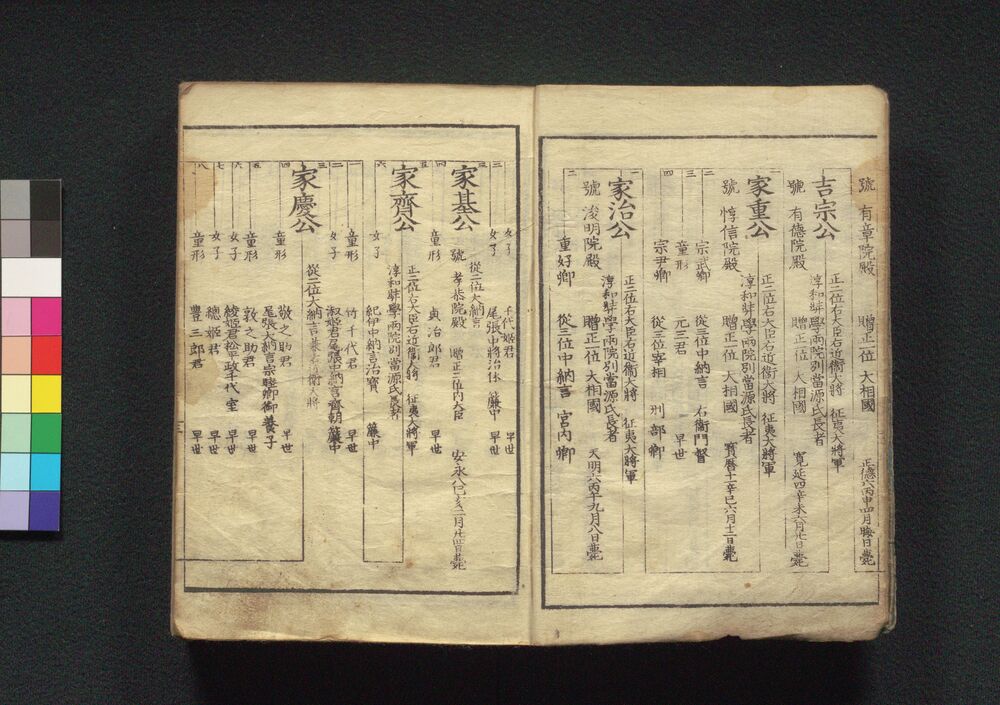 號 有章院殿 贈正一位 大相國 正德六丙申四月晦日薨
吉宗公 正二位右大臣右近衛大將 征夷大將軍
淳和奬學兩院別當源氏長者
號 有德院殿 贈正一位 大相國 寬延四辛未六月廿日薨
一 家重公 正二位右大臣右近衛大將 征夷大將軍
淳和奬學兩院別當源氏長者
號 惇信院殿 贈正一位 大相國 寳曆十一辛巳六月十二日薨
二 宗武卿 從三位中納言 右衛門督
三 童形 元三君 早世
四 宗尹卿 從三位宰相 刑部卿
一 家治公 正二位右大臣右近衛大將 征夷大將軍
淳和奬學兩院別當源氏長者
號 浚明院殿 贈正一位 大相國 天明六丙午九月八日薨
二 重好卿 從三位中納言 宮内卿
女子 千代姬君 早世
三 女子 尾張中將治休 簾中 早世
家基公 從二位大納言
號 孝恭院殿 贈正二位内大臣 安永八己亥二月廿四日薨
四 童形 貞次郎君 早世
家齊公 正二位右大臣右近衛大將 征夷大將軍
淳和奬學兩院別當源氏長者
六 女子 紀伊中納言治寶 簾中
一 童形 竹千代君 早世
二 女子 淑姬君尾張中納言齊朝簾中
三 家慶公 從二位大納言
四 童形 敬之助君 早世
尾張大納言宗睦卿御養子
五 童形 敦之助君 早世
六 女子 綾姬君松平政千代室 早世
七 女子 總姬君 早世
八 童形 豊三郎君 早世